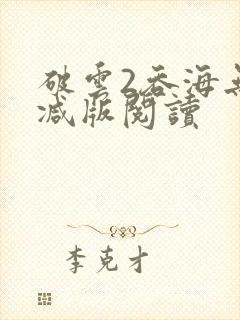 破雲2吞海無
減版閱讀
李克才